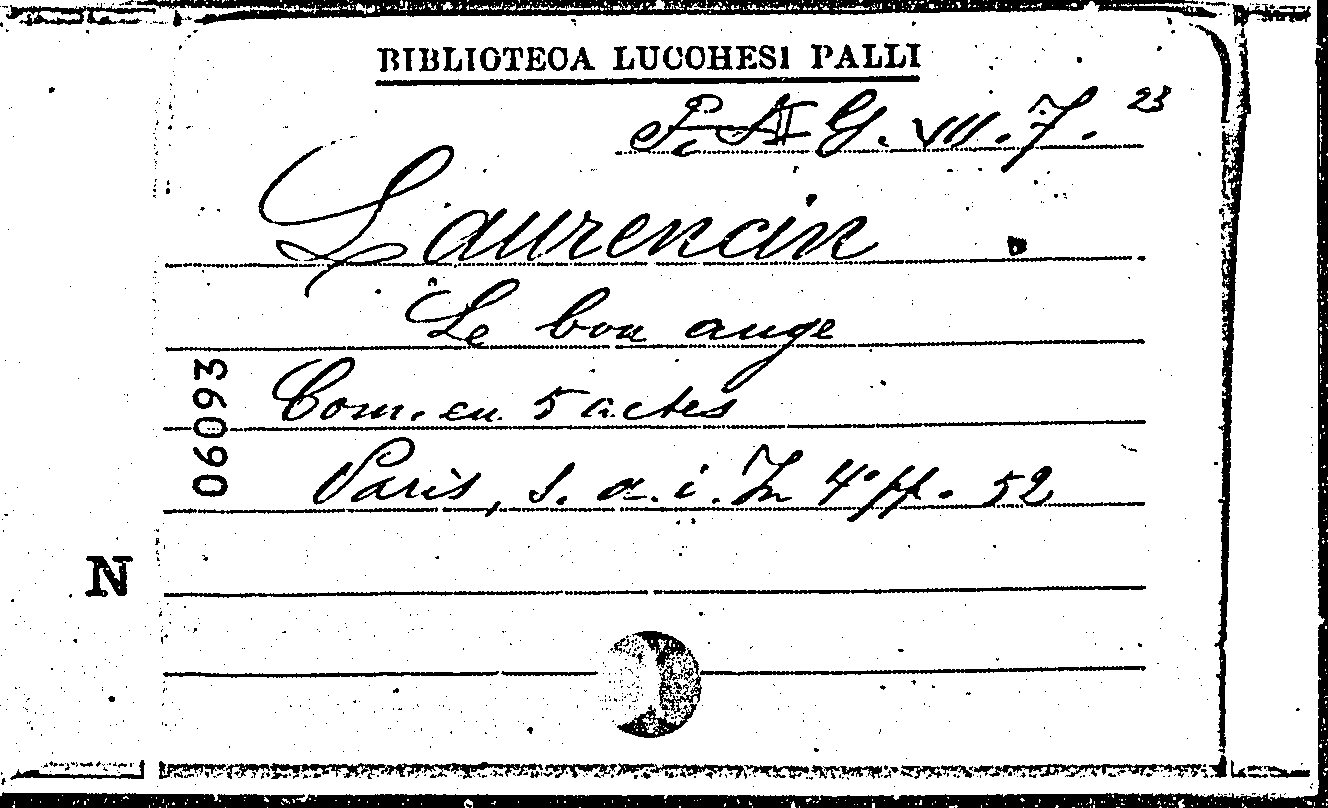 BIBLIOTECA LUCCHESI PALLI
G. VII. 7. 23
Laurencin
Le bon ange
Com. en 5 actes
Paris, s. a. i. In 4° pp. 52
06093
N